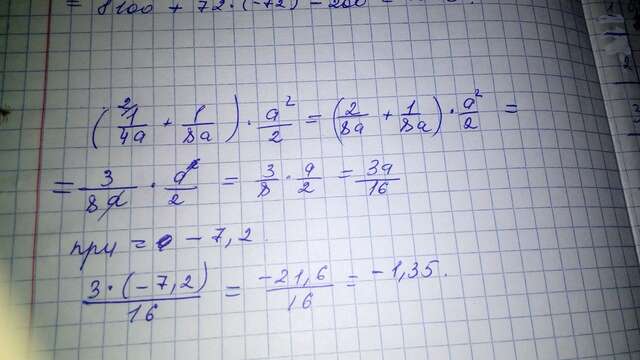 = 8100 + 72·(-72) - 200 =
(1/4a + 1/8a) · a²/2 = (2/8a + 1/8a) · a²/2 =
= 3/8a · a²/2 = 3/8 · a/2 = 3a/16
при = - 7,2.
3·(-7,2)/16 = -21,6/16 = -1,35.